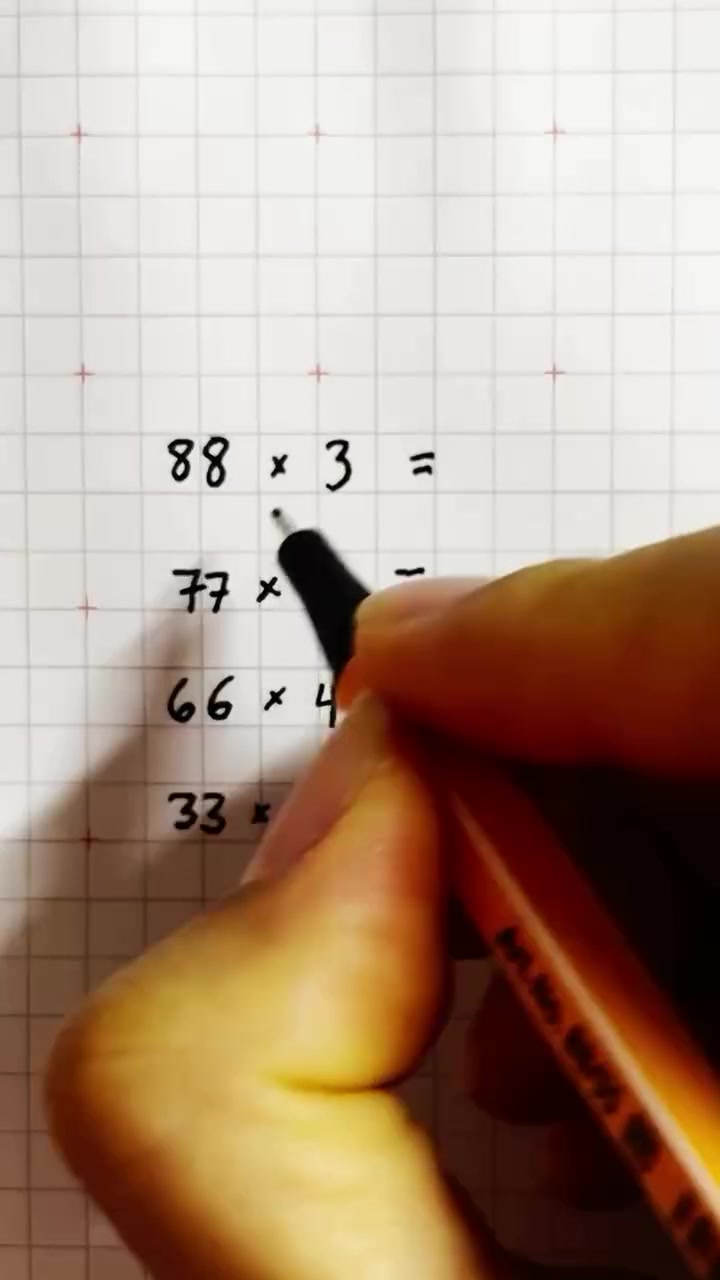 88 × 3 =
77 ×
66 × 4
33 ×